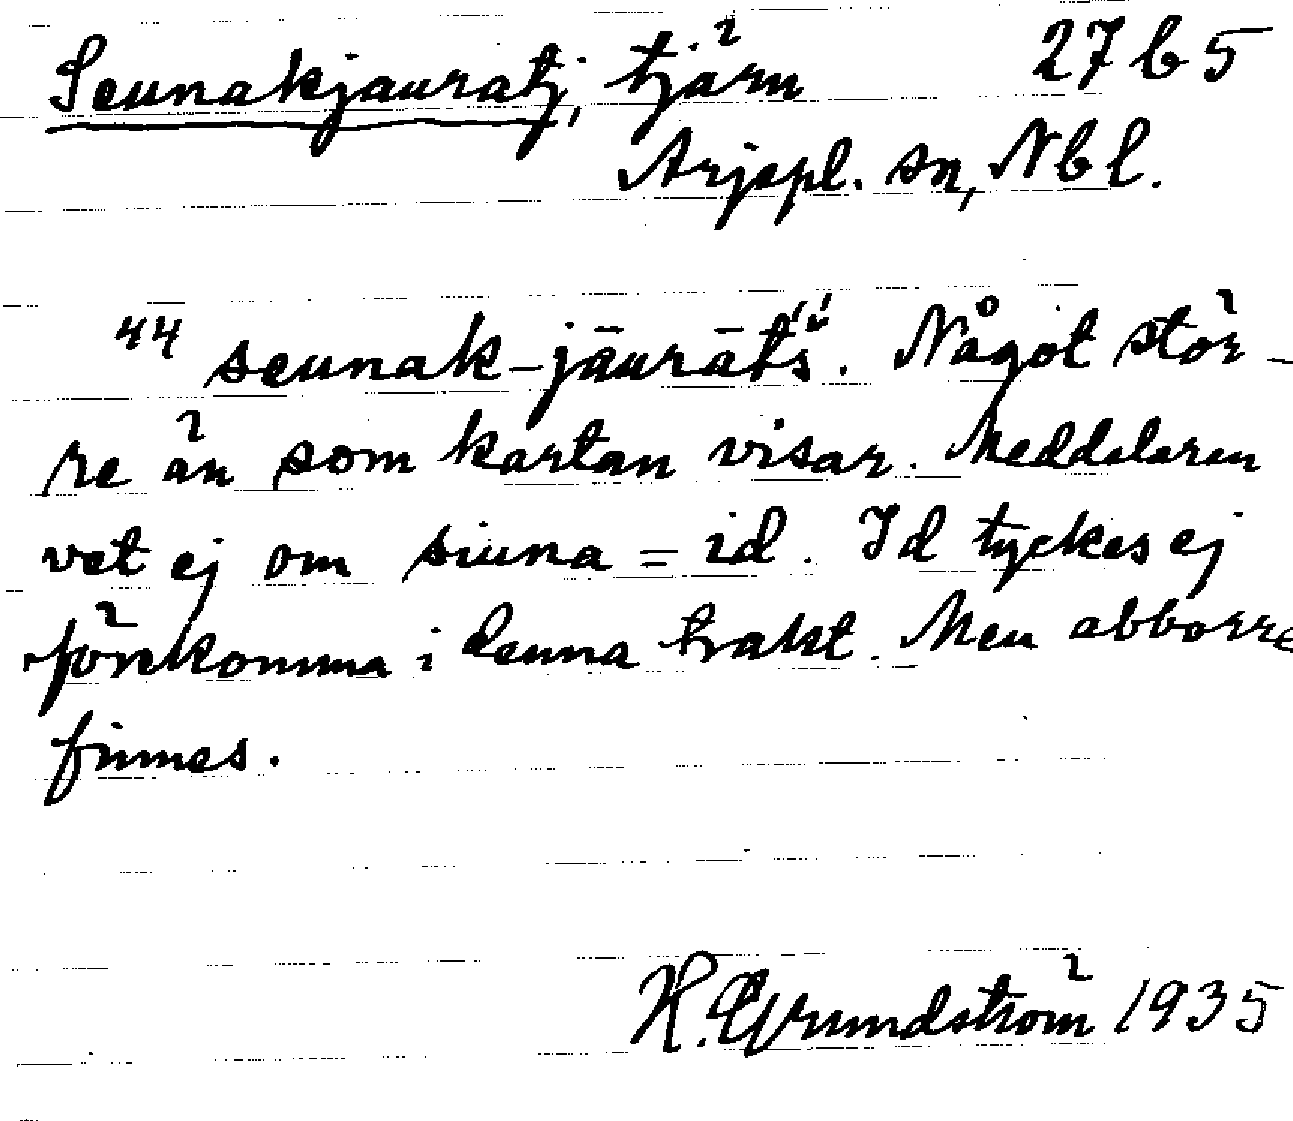 Seunakjauratj, tjärn 27 b 5
Arjepl. sn, Nbl.
44 seunak-jāurāts̆́. Något stör-
re än som kartan visar. Meddelaren
vet ej om siuna = id. Id tyckes ej
förekomma i denna trakt. Men abborre
finnes.
H. Grundström 1935